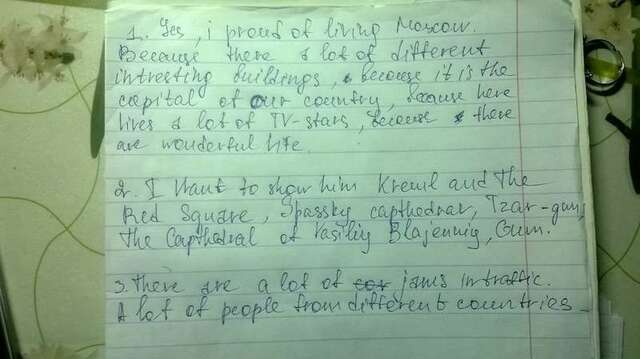 1. Yes, i proud of living Moscow.
Because there a lot of different
intresting buildings, because it is the
capital of our country, because here
lives a lot of TV-stars, because there
are wonderful life.
2. I want to show him Kreml and the
Red Square, Spassky capthedrar, Tzar-gun,
the Capthedral of Vasiliy Blajenniy, Gum.
3. There are a lot of jams in traffic.
A lot of people from different countries